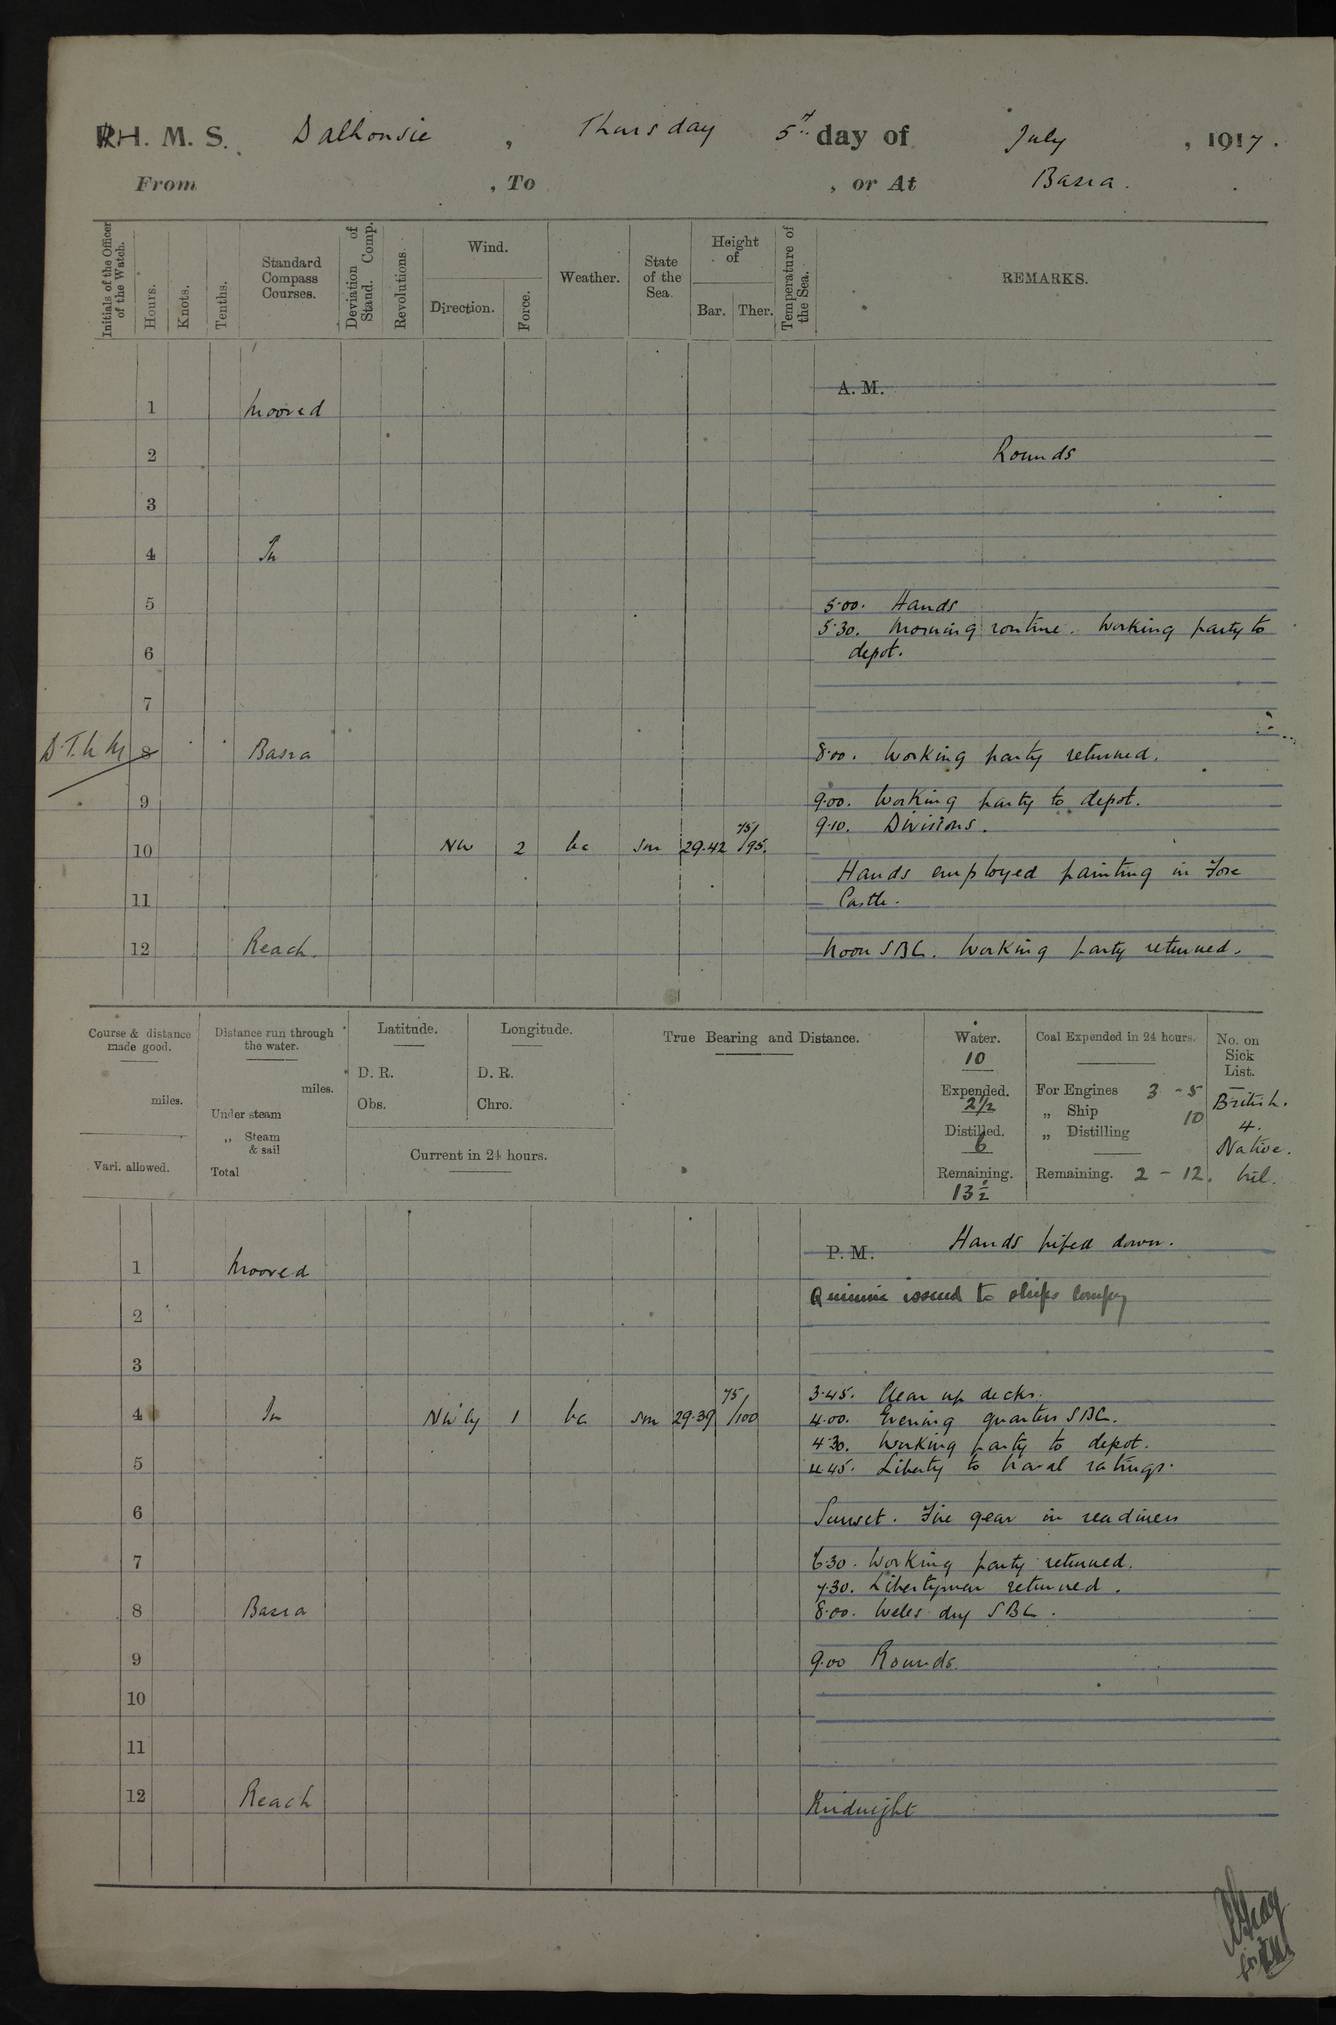 R.H. M. S. Dalhousie, Thursday 5th day of July, 1917.
From , To , or At Basra.
Initials of the Officer of the Watch.
Hours.
Knots.
Tenths.
Standard Compass Courses.
Deviation of Stand. Comp.
Revolutions.
Wind.
Direction.
Force.
Weather.
State of the Sea.
Height of
Bar. Ther.
Temperature of the Sea.
REMARKS.
A. M.
1 Moored
2 Rounds
3
4 In
5 5.00. Hands
5.30. Morning routine. Working party to
6 depot.
7
8 Basra 8.00. Working party returned.
9 9.00. Working party to depot.
9.10. Divisions.
10 NW 2 bc sm 29.42 75/95.
Hands employed painting in Fore
11 Castle.
12 Reach. Noon SBC. Working party returned.
Course & distance made good.
miles.
Vari. allowed.
Distance run through the water.
miles.
Under steam
„ Steam & sail
Total
Latitude.
D. R.
Obs.
Longitude.
D. R.
Chro.
Current in 24 hours.
True Bearing and Distance.
Water.
10
Expended.
2½
Distilled.
6
Remaining.
13½
Coal Expended in 24 hours.
For Engines 3 - 5
„ Ship 10
„ Distilling
Remaining. 2 - 12.
No. on Sick List.
British.
4.
Native.
Nil.
P. M. Hands piped down.
1 Moored
Quinine issued to ships Compy
2
3
3.45. Clear up decks.
4 In NW'ly 1 bc sm 29.39 75/100 4.00. Evening quarters SBC.
4.30. Working party to depot.
5 4.45. Liberty to Naval ratings.
6 Sunset. Fire gear in readiness
7 6.30. Working party returned.
7.30. Libertymen returned.
8 Basra 8.00. Wells dry SBC.
9 9.00 Rounds.
10
11
12 Reach Midnight